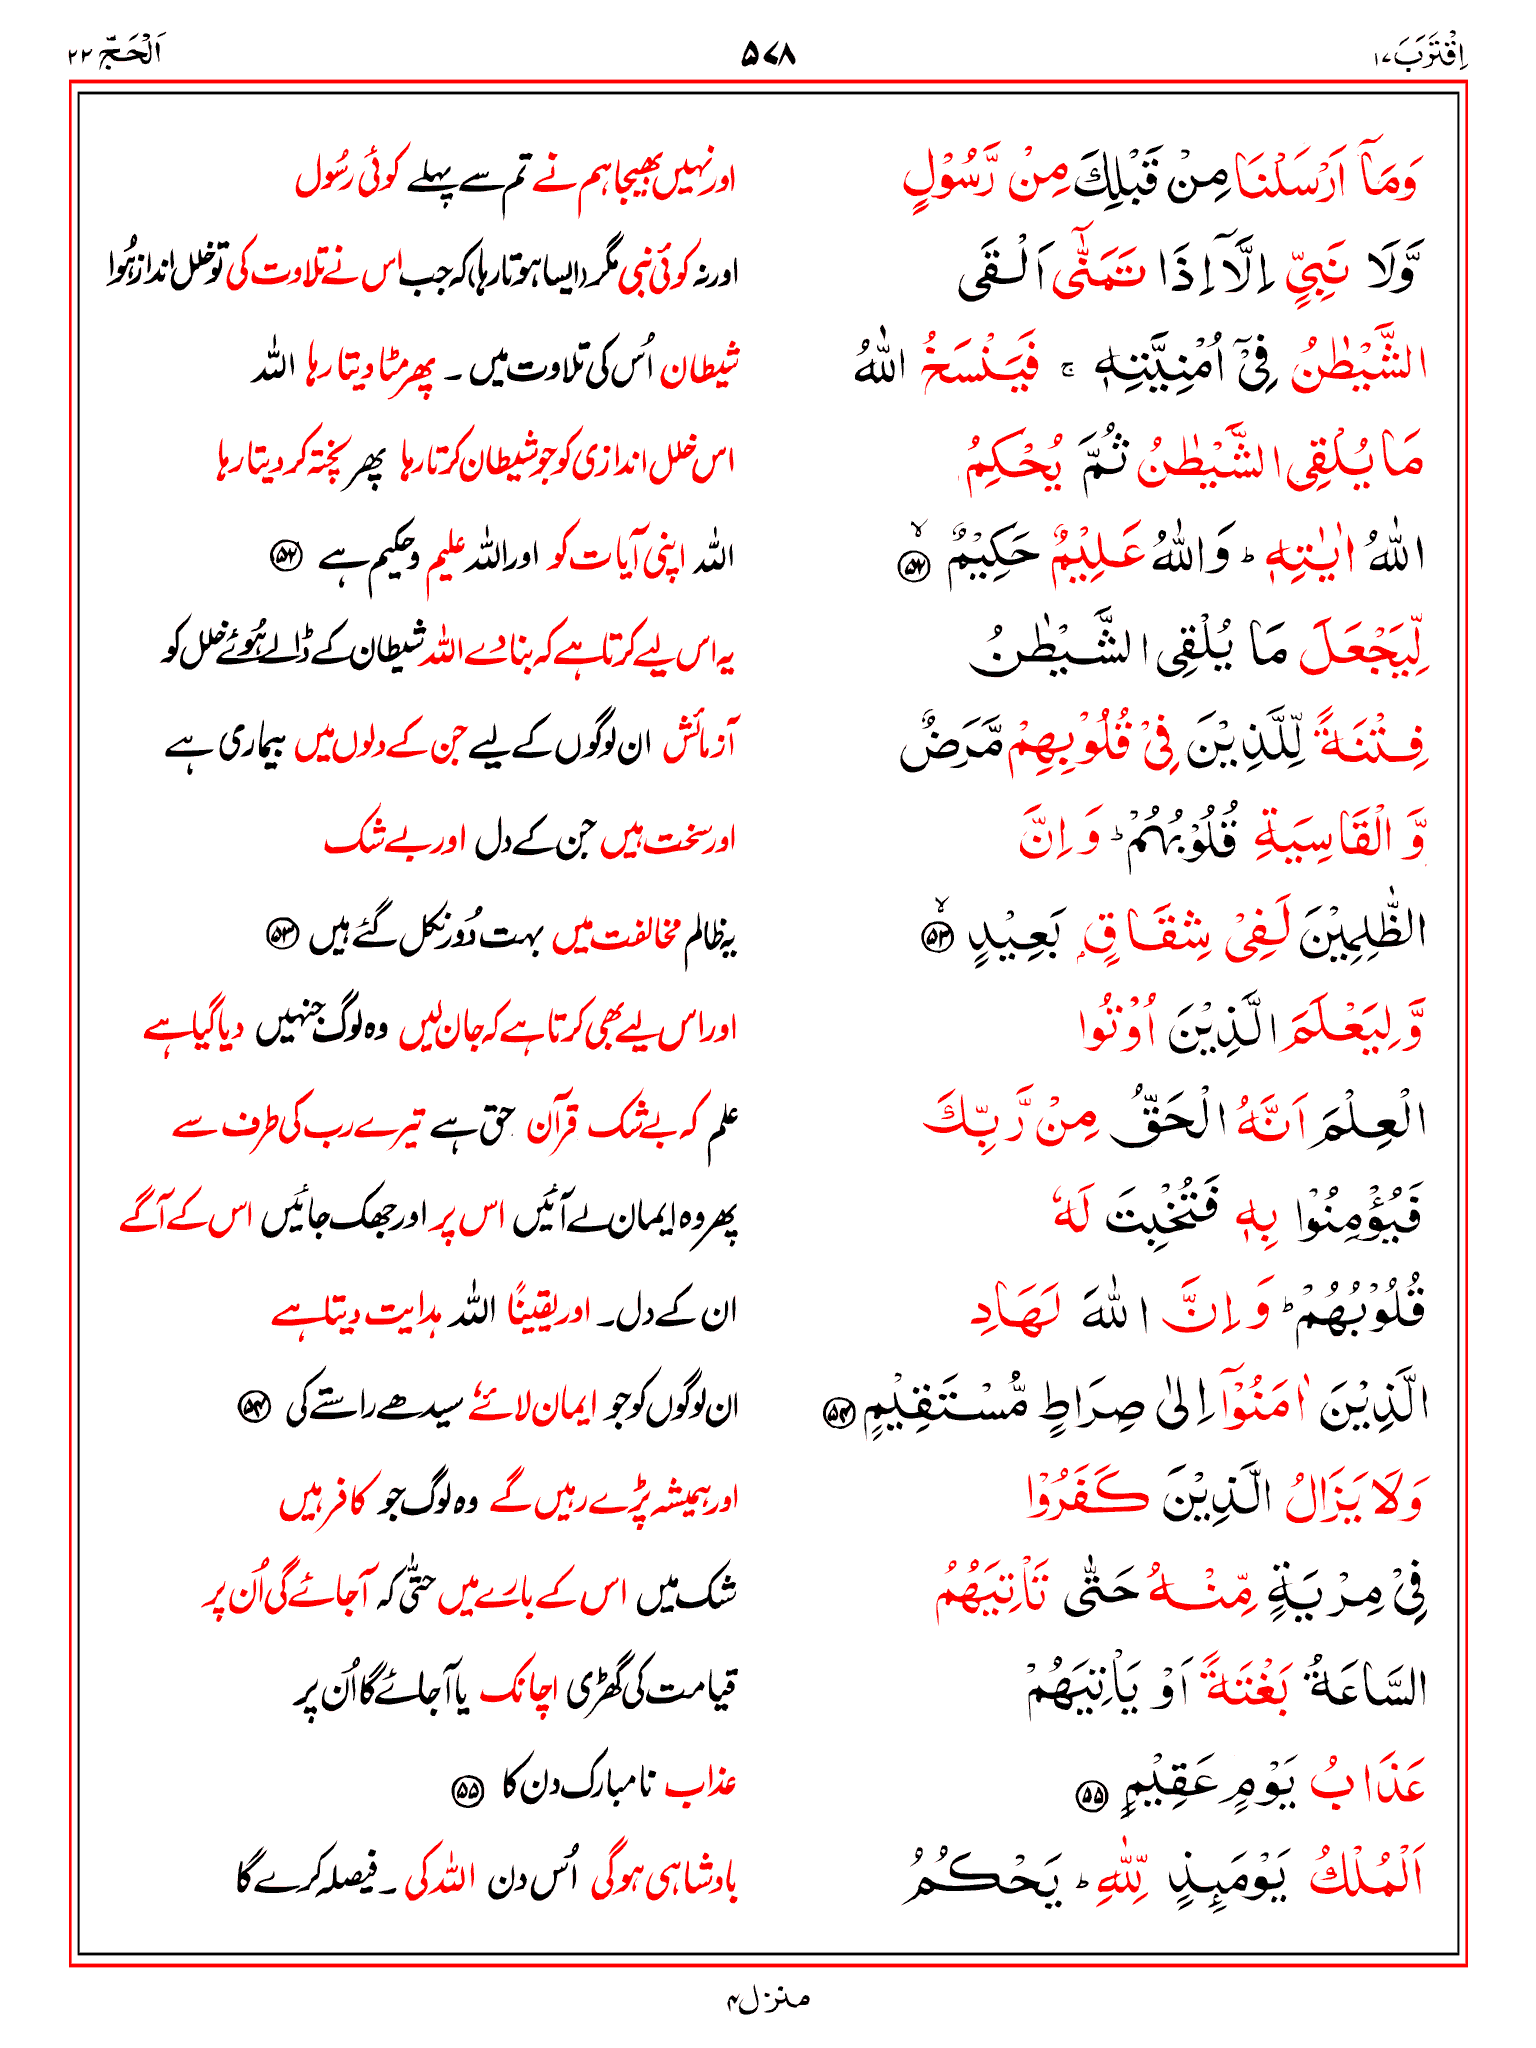 اِقْتَرَبَ ۱۷
۵۷۸
اَلْحَجّ ۲۲
وَمَاۤ اَرْسَلْنَا مِنْ قَبْلِكَ مِنْ رَّسُوْلٍ
اور نہیں بھیجا ہم نے تم سے پہلے کوئی رسُول
وَّلَا نَبِيٍّ اِلَّاۤ اِذَا تَمَنّٰۤى اَلْقَى
اور نہ کوئی نبی مگر (ایسا ہوتا رہا) کہ جب اس نے تلاوت کی تو خلل انداز ہُوا
الشَّيْطٰنُ فِيْۤ اُمْنِيَّتِهٖ ۚ فَيَنْسَخُ اللّٰهُ
شیطان اُس کی تلاوت میں ۔ پھر مٹا دیتا رہا اللہ
مَا يُلْقِى الشَّيْطٰنُ ثُمَّ يُحْكِمُ
اس خلل اندازی کو جو شیطان کرتا رہا پھر پختہ کر دیتا رہا
اللّٰهُ اٰيٰتِهٖ ؕ وَاللّٰهُ عَلِيْمٌ حَكِيْمٌ ۙ ۵۲
اللہ اپنی آیات کو اور اللہ علیم و حکیم ہے ۵۲
لِّيَجْعَلَ مَا يُلْقِى الشَّيْطٰنُ
یہ اس لیے کرتا ہے کہ بنا دے اللہ شیطان کے ڈالے ہُوئے خلل کو
فِتْنَةً لِّلَّذِيْنَ فِيْ قُلُوْبِهِمْ مَّرَضٌ
آزمائش ان لوگوں کے لیے جن کے دلوں میں بیماری ہے
وَّ الْقَاسِيَةِ قُلُوْبُهُمْ ؕ وَ اِنَّ
اور سخت ہیں جن کے دل اور بے شک
الظّٰلِمِيْنَ لَفِيْ شِقَاقٍۭ بَعِيْدٍ ۙ ۵۳
یہ ظالم مخالفت میں بہت دُور نکل گئے ہیں ۵۳
وَّ لِيَعْلَمَ الَّذِيْنَ اُوْتُوا
اور اس لیے بھی کرتا ہے کہ جان لیں وہ لوگ جنہیں دیا گیا ہے
الْعِلْمَ اَنَّهُ الْحَقُّ مِنْ رَّبِّكَ
علم کہ بے شک قرآن حق ہے تیرے رب کی طرف سے
فَيُؤْمِنُوْا بِهٖ فَتُخْبِتَ لَهٗ
پھر وہ ایمان لے آئیں اس پر اور جھک جائیں اس کے آگے
قُلُوْبُهُمْ ؕ وَ اِنَّ اللّٰهَ لَهَادِ
ان کے دل ۔ اور یقیناً اللہ ہدایت دیتا ہے
الَّذِيْنَ اٰمَنُوْۤا اِلٰى صِرَاطٍ مُّسْتَقِيْمٍ ۵۴
ان لوگوں کو جو ایمان لائے سیدھے راستے کی ۵۴
وَلَا يَزَالُ الَّذِيْنَ كَفَرُوْا
اور ہمیشہ پڑے رہیں گے وہ لوگ جو کافر ہیں
فِيْ مِرْيَةٍ مِّنْهُ حَتّٰى تَاْتِيَهُمُ
شک میں اس کے بارے میں حتّٰی کہ آجائے گی اُن پر
السَّاعَةُ بَغْتَةً اَوْ يَاْتِيَهُمْ
قیامت کی گھڑی اچانک یا آجائے گا اُن پر
عَذَابُ يَوْمٍ عَقِيْمٍ ۵۵
عذاب نامبارک دن کا ۵۵
اَلْمُلْكُ يَوْمَىِٕذٍ لِّلّٰهِ ؕ يَحْكُمُ
بادشاہی ہوگی اُس دن اللہ کی ۔ فیصلہ کرے گا
منزل ۴